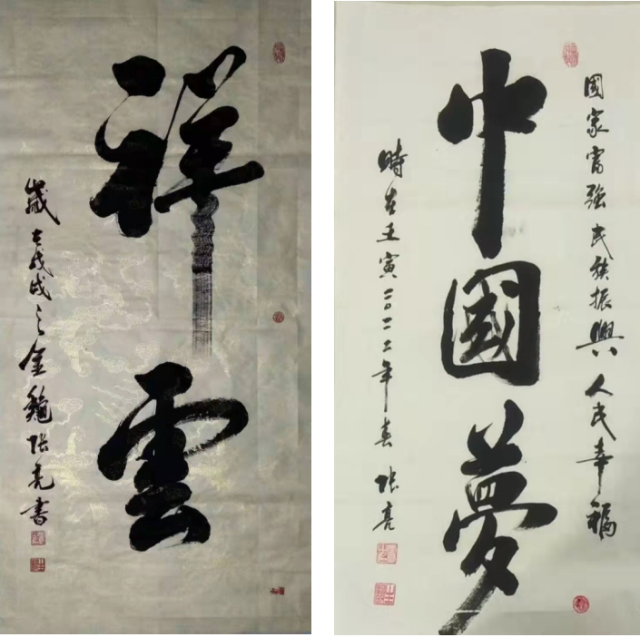 祥雲
歲在戊戌之金龝張亮書
國家富強民族振興人民幸福
中國夢
時在壬寅二〇二二年春張亮